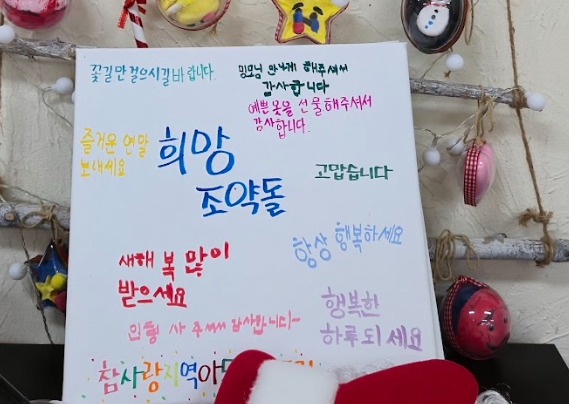 꽃길만 걸으시길 바랍니다.
부모님 만나게 해주셔서
감사합니다
예쁜 옷을 선물해주셔서
감사합니다.
즐거운 연말
보내세요
희망
조약돌
고맙습니다
항상 행복하세요
새해 복 많이
받으세요
인형 사 주셔서 감사합니다~
행복한
하루 되세요
참사랑지역아